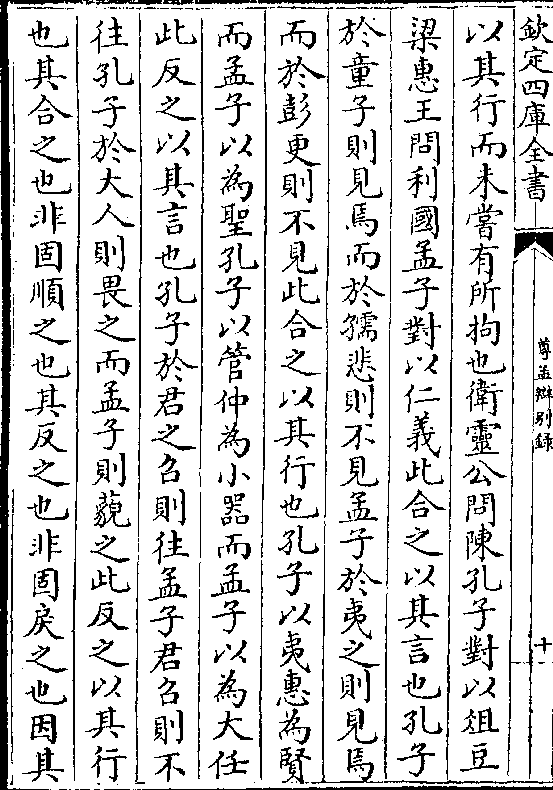 欽定四庫全書
尊孟辯別録
十
以其行而未嘗有所拘也衛靈公問陳孔子對以俎豆
梁惠王問利國孟子對以仁義此合之以其言也孔子
於童子則見焉而於孺悲則不見孟子於夷之則見焉
而於彭更則不見此合之以其行也孔子以夷惠為賢
而孟子以為聖孔子以管仲為小器而孟子以為大任
此反之以其言也孔子於君之召則往孟子君召則不
往孔子於大人則畏之而孟子則藐之此反之以其行
也其合之也非固順之也其反之也非固戾之也因其